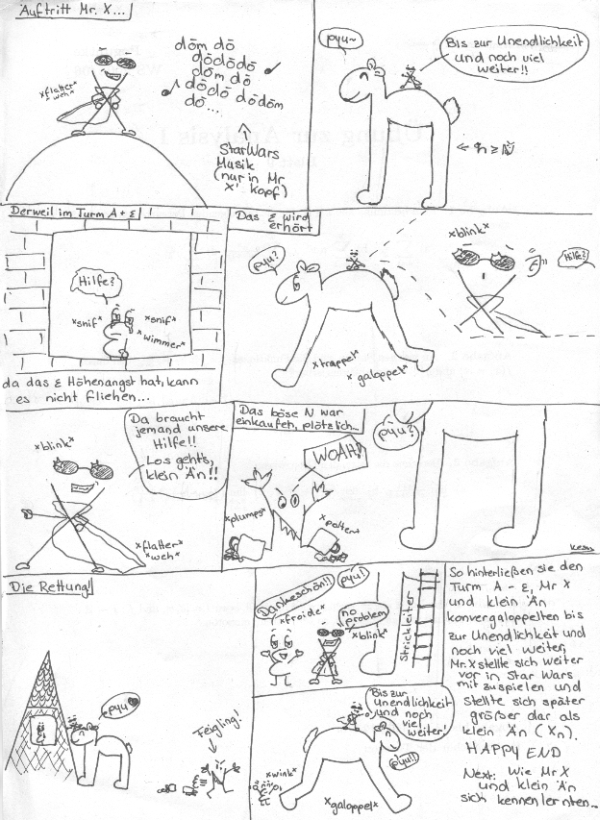 Auftritt Mr. X...
döm dö
dödödö
döm dö
dödö dödöm
dö...
*flatter*
*weh*
StarWars
Musik
(nur in Mr
X' Kopf)
pyu~
Bis zur Unendlichkeit
und noch viel
weiter!!
Derweil im Turm A+ε
Hilfe?
*snif*
*snif*
*wimmer*
da das ε Höhenangst hat, kann
es nicht fliehen...
Das ε wird
erhört
pyu?
*trappel*
*galoppel*
*blink*
Hilfe?
*blink*
Da braucht
jemand unsere
Hilfe!!
Los gehts,
klein Än!!
*flatter*
*weh*
Das böse N war
einkaufen, plötzlich...
WOAH!
*plumps*
*polter*
pyu?
Die Rettung!
pyu
Feigling!
Dankeschön!!
pyu!!
*froide*
no
problem
*blink*
Strickleiter
Bis zur
Unendlichkeit
und noch
viel
weiter!
pyu!!
*wink*
*galoppel*
So hinterließen sie den
Turm A - ε, Mr X
und klein Än
konvergaloppelten bis
zur Unendlichkeit und
noch viel weiter,
Mr. X stellte sich weiter
vor in Star Wars
mitzuspielen und
stellte sich später
größer dar als
klein Än (Xn).
HAPPY END
Next: Wie Mr X
und klein Än
sich kennenlernten...